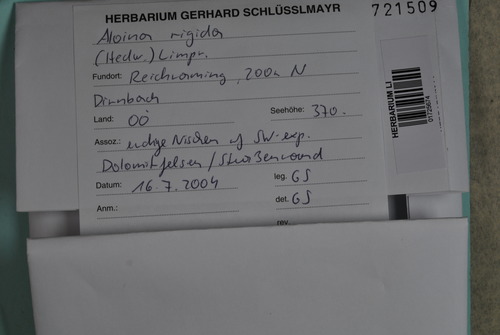 HERBARIUM GERHARD SCHLÜSSLMAYR
721509
Aloina rigida
(Hedw.) Limpr.
Fundort: Reichraming, 200m N
Dirnbach
Land: OÖ
Seehöhe: 370.
Assoz.: erdige Nischen auf SW-exp.
Dolomitfelsen / Straßenrand
Datum: 16.7.2004
leg. GS
det. GS
Anm.:
rev.
HERBARIUM LI